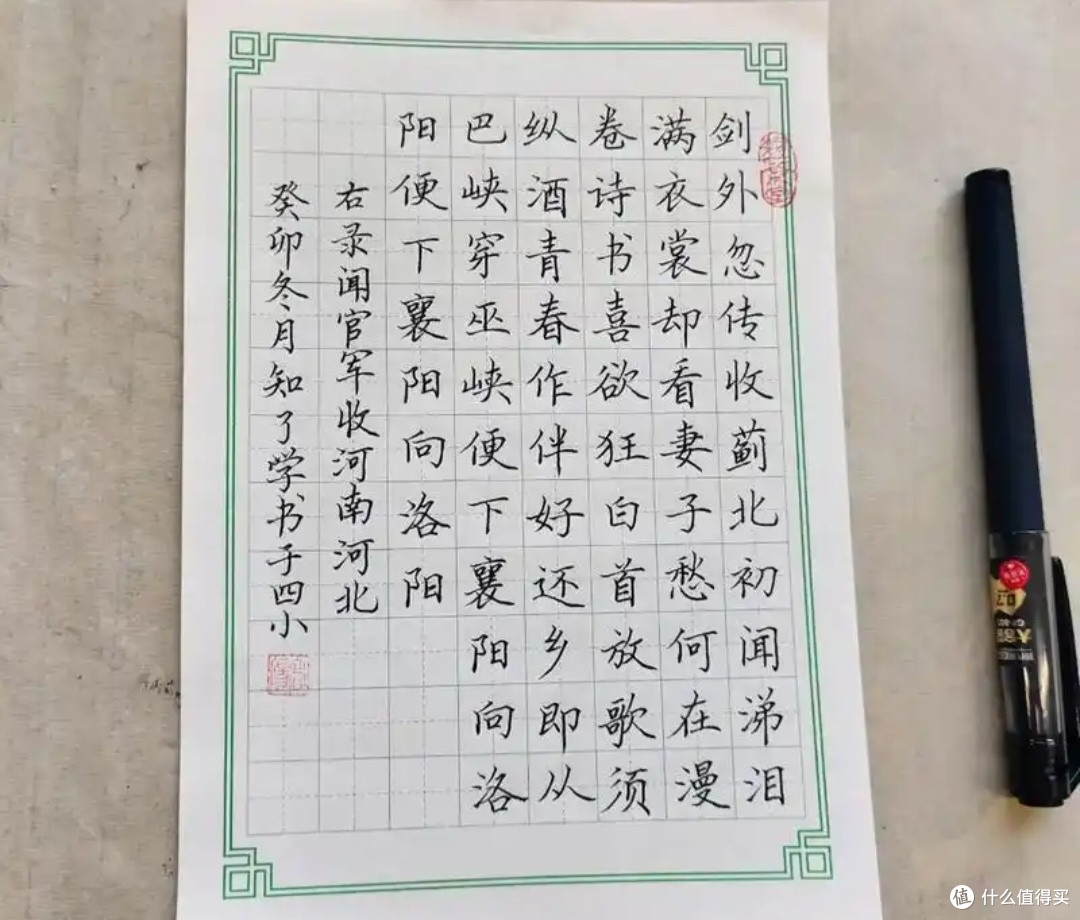 剑外忽传收蓟北初闻涕泪
满衣裳却看妻子愁何在漫
卷诗书喜欲狂白首放歌须
纵酒青春作伴好还乡即从
巴峡穿巫峡便下襄阳向洛
阳便下襄阳向洛阳
右录闻官军收河南河北
癸卯冬月知了学书于四小
值 什么值得买